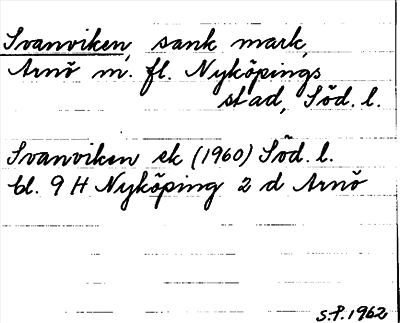 Svanviken, sank mark,
Arnö m. fl. Nyköpings
stad, Söd. l.
Svanviken ek (1960) Söd. l.
bl. 9 H Nyköping 2 d Arnö
S.P. 1962